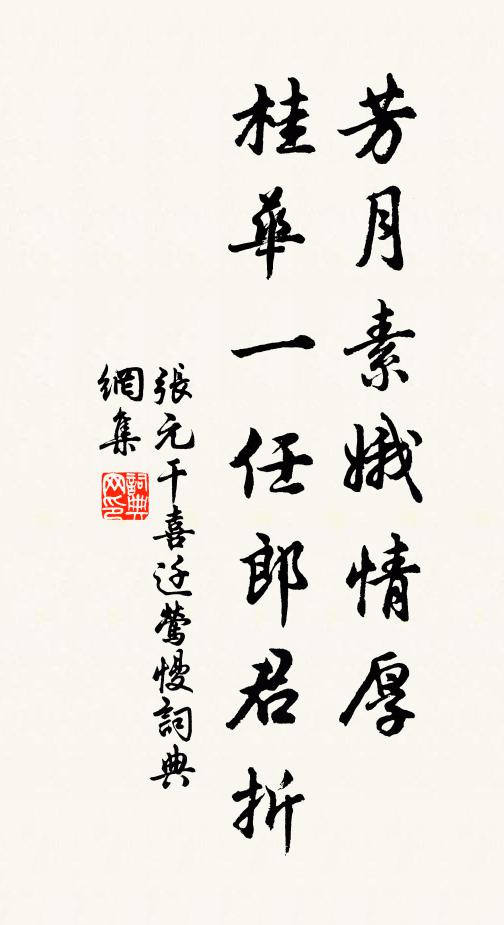 芳月素娥情厚
桂華一任郎君折
張元干喜迁鶯慢詞典
網集
詞典
网印